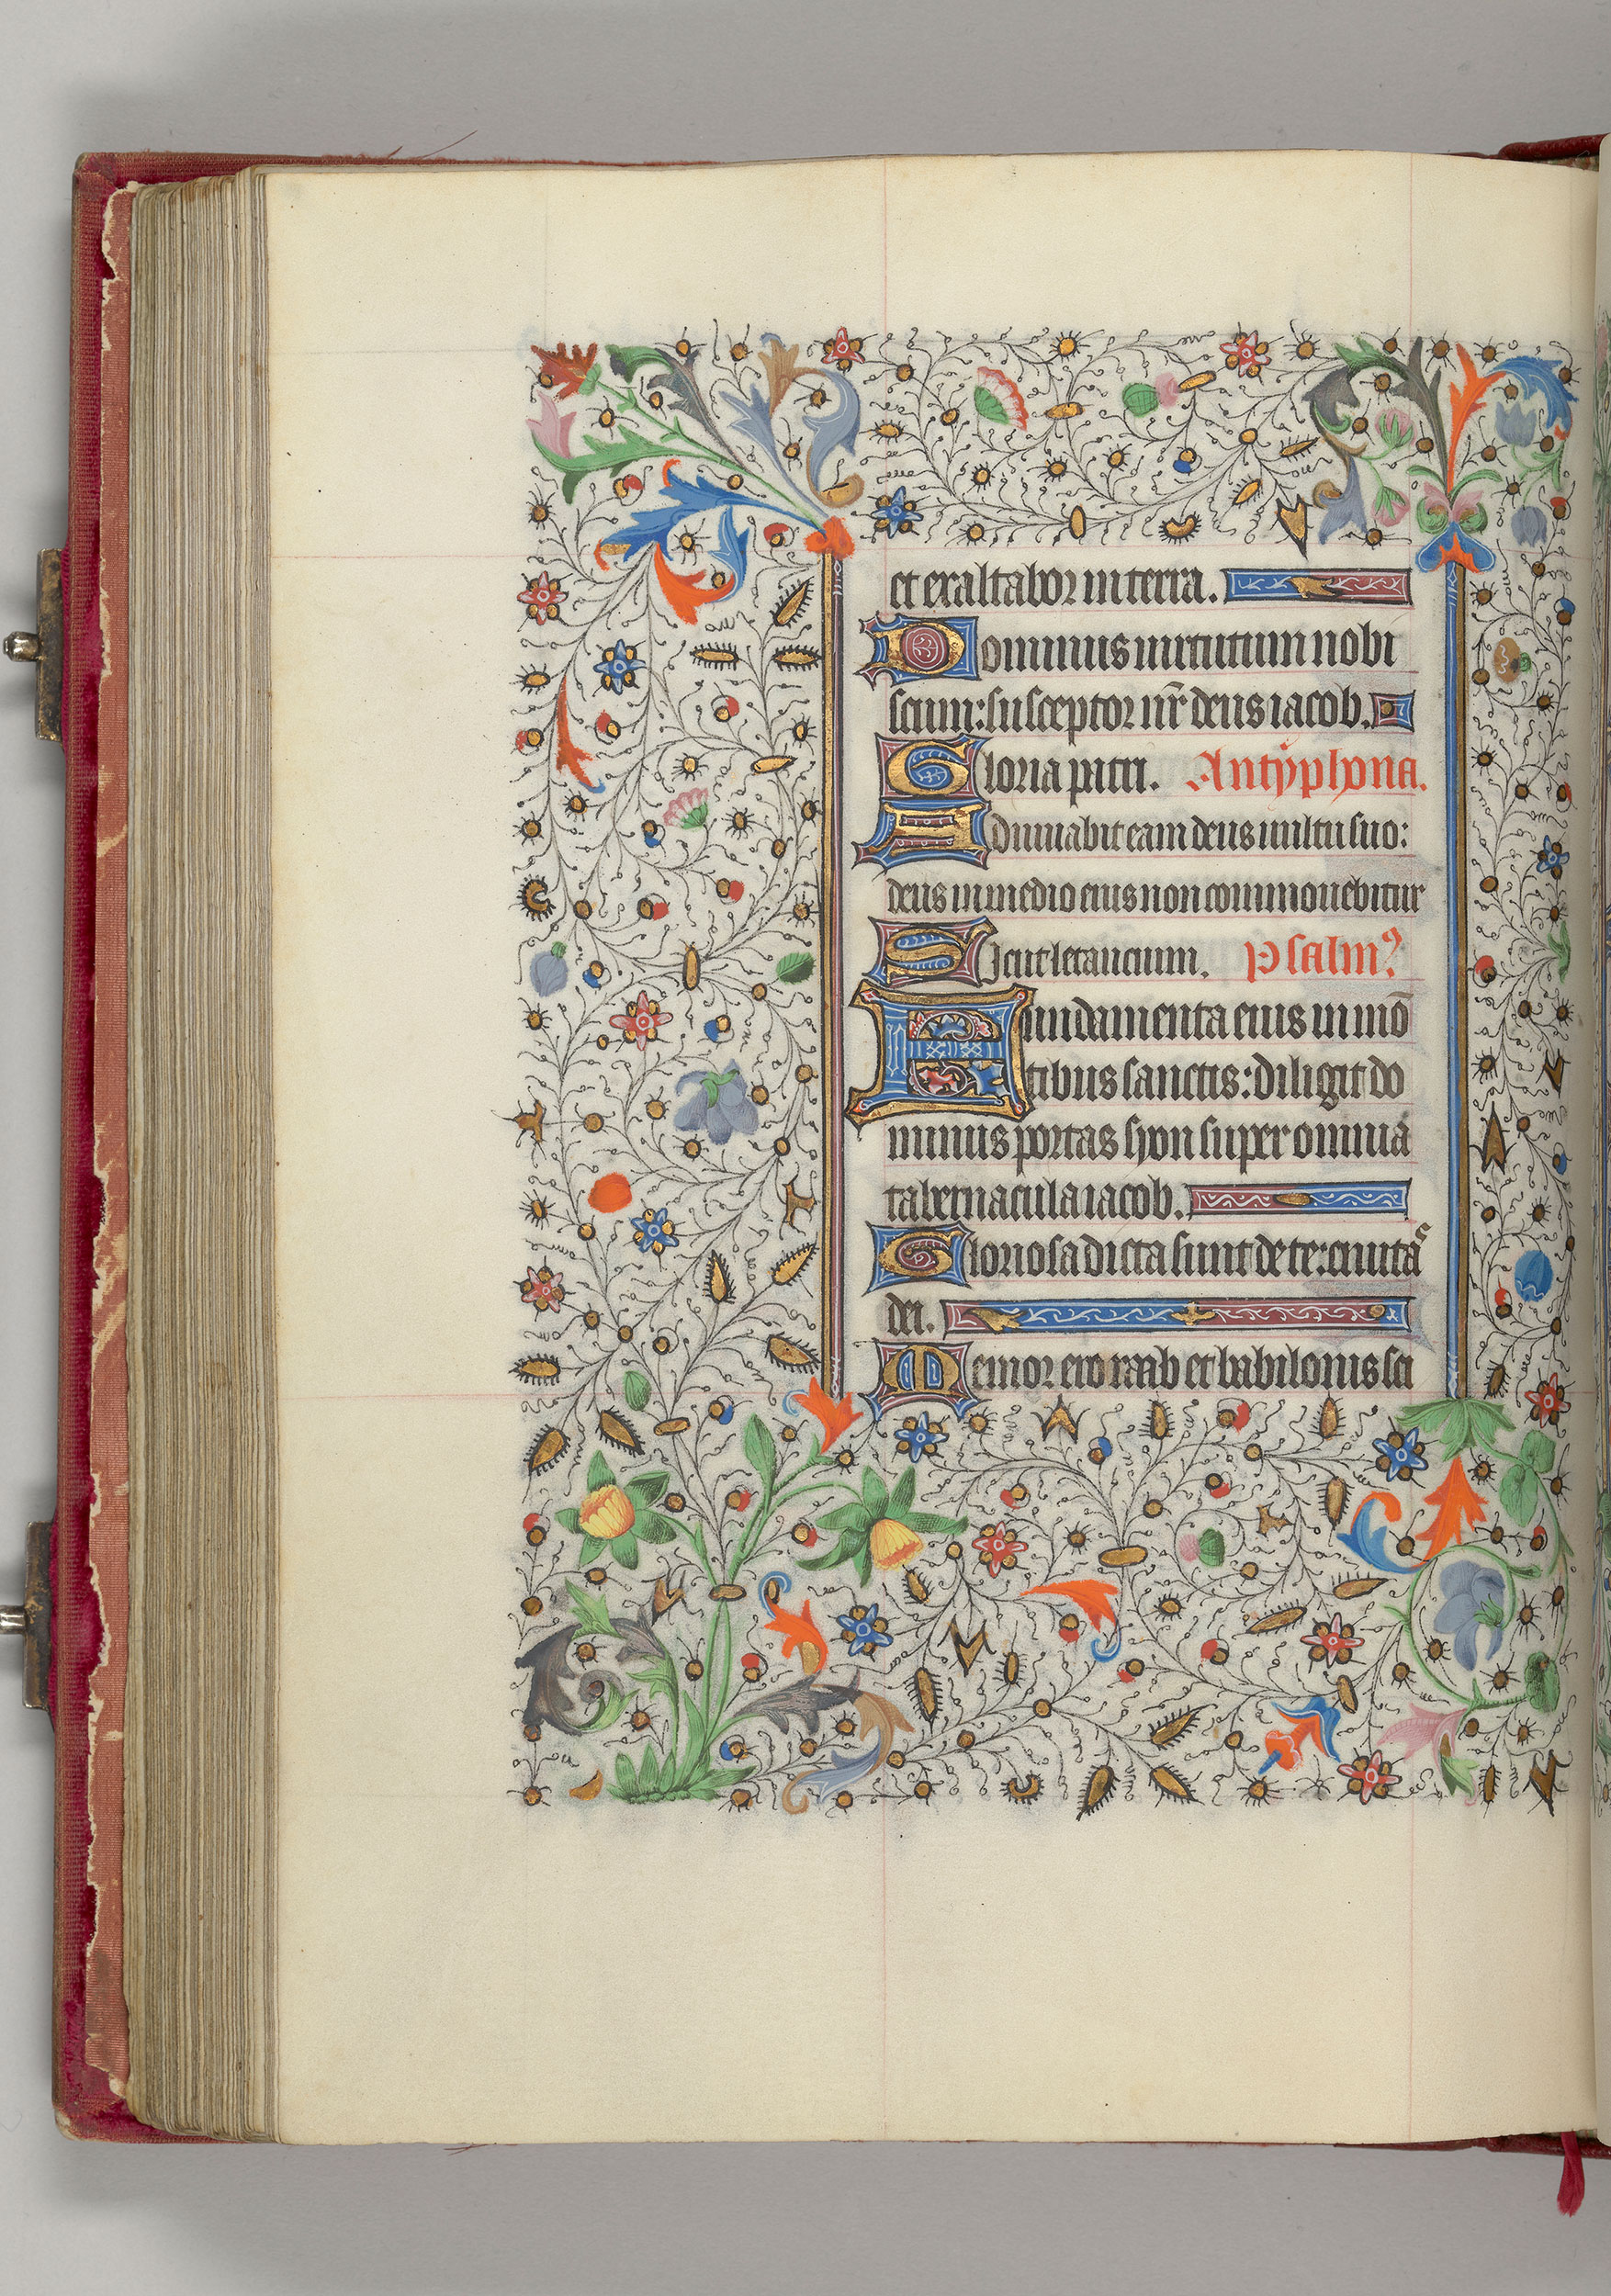 et exaltabor in terra.
Dominus uirtutum nobi
scum: susceptor nr̄ deus iacob.
Gloria patri. Antyphona.
Adiuuabit eam deus uultu suo:
deus in medio eius non commouebitur
Sicut letancium. Psalmꝰ
Fundamenta eius in mō
tibus sanctis: diligit do
minus portas syon super omnia
tabernacula iacob.
Gloriosa dicta sunt de te: ciuitaˢ
dei.
Memor ero raab et babilonis sci